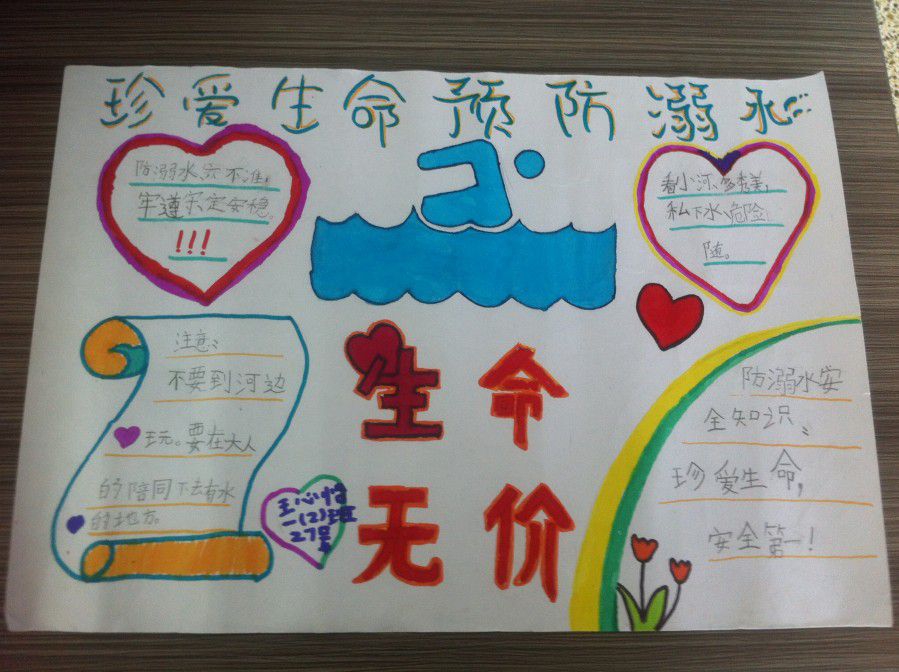 珍爱生命预防溺水
防溺水、六不准,
牢遵守定安稳。
!!!
看小河、多秀美,
私下水、危险
随。
注意:
不要到河边
玩。要在大人
的陪同下去有水
的地方。
生命
无价
王心怡
一(2)班
27号
防溺水安
全知识:
珍爱生命,
安全第一!